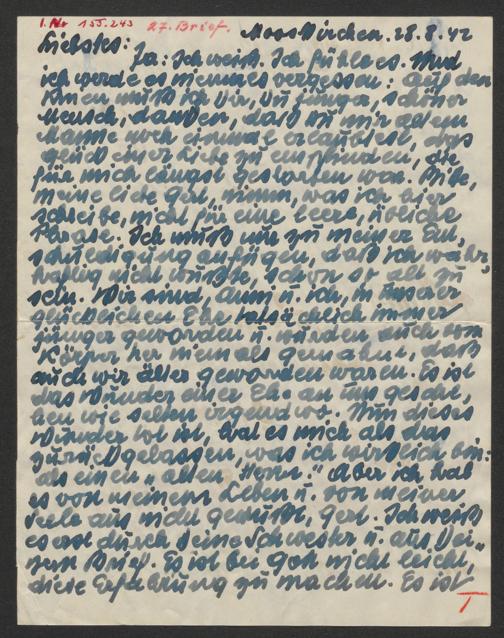 I. Nr 155.243 27. Brief. Mooskirchen. 28.8.42
Liebstes:
Ja: Ich weiß. Ich fühle es. Und
ich werde es niemals vergessen: auf den
Knien muß ich Dir, Du junger, schöner
Mensch, danken, daß Du mir altem
Manne noch einmal erlaubtest, das
Glück einer Liebe zu empfinden, die
für mich längst gestorben war. Bitte,
meine liebe Gerl, nimm, was ich hier
schreibe, nicht für eine leere, übliche
Phrase. Ich muß nur zu meiner Ent,
schuldigung anfügen, daß ich wahr,
haftig nicht wußte, schon so alt zu
sein. Wir sind, u. ich, in unserer
glücklichen Ehe tatsächlich immer
jünger geworden u. wurden auch vom
Körper her niemals gemahnt, daß
auch wir älter geworden waren. Es ist
das Wunder einer Ehe an uns gesche,
hen wie selten irgendwo. Nun dieses
Wunder tot ist, hat es mich als das
zurückgelassen, was ich wirklich bin:
als einen „alten Herrn." Aber ich hab
es von meinem Leben u. von meiner
Seele aus nicht gewußt, Gerl: Ich weiß
es erst durch Deine Schwester u. aus Dei,
nem Brief. Es ist bei Gott nicht leicht,
diese Erfahrung zu machen. Es ist